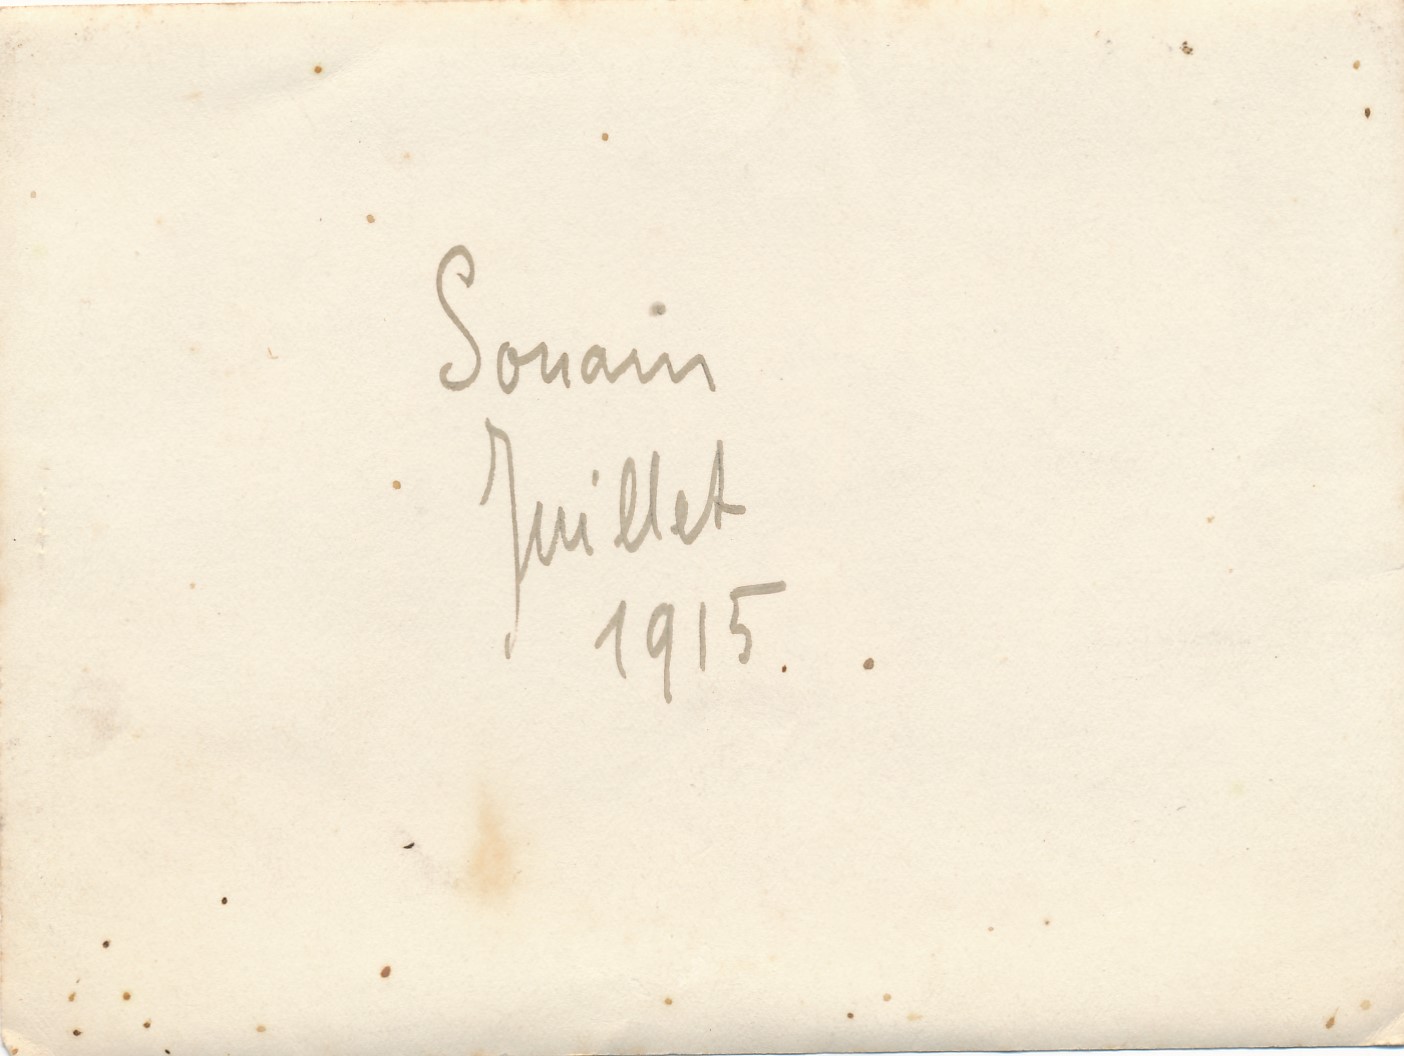 Souain
Juillet
1915.